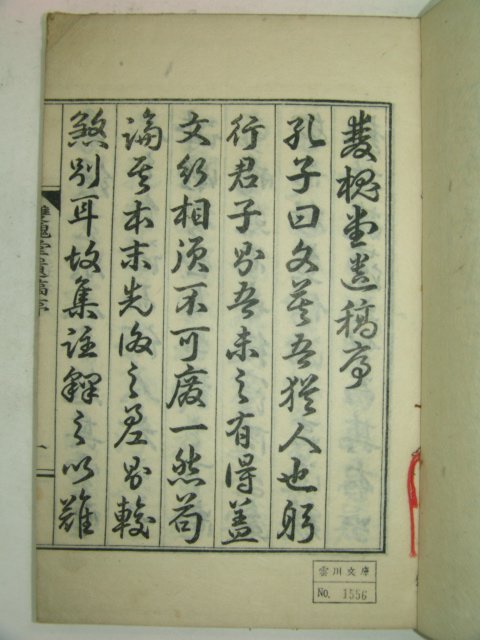 雙槐堂遺稿序
孔子曰文莫吾猶人也躬
行君子則吾未之有得蓋
文行相須不可廢一然苟
論其本末先後之差則較
煞別耳故集註釋之以難
雙槐堂遺稿序
一
雲川文庫
No. 1556